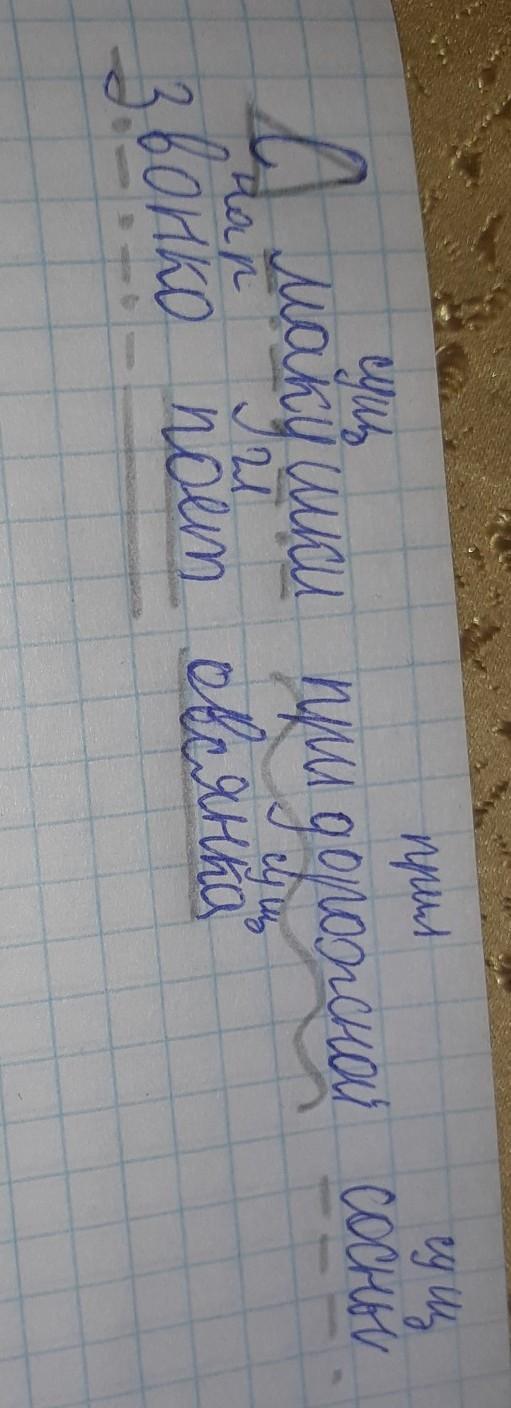 сущ прил сущ
С макушки придорожной сосны
нар гл сущ
звонко поет овсянка